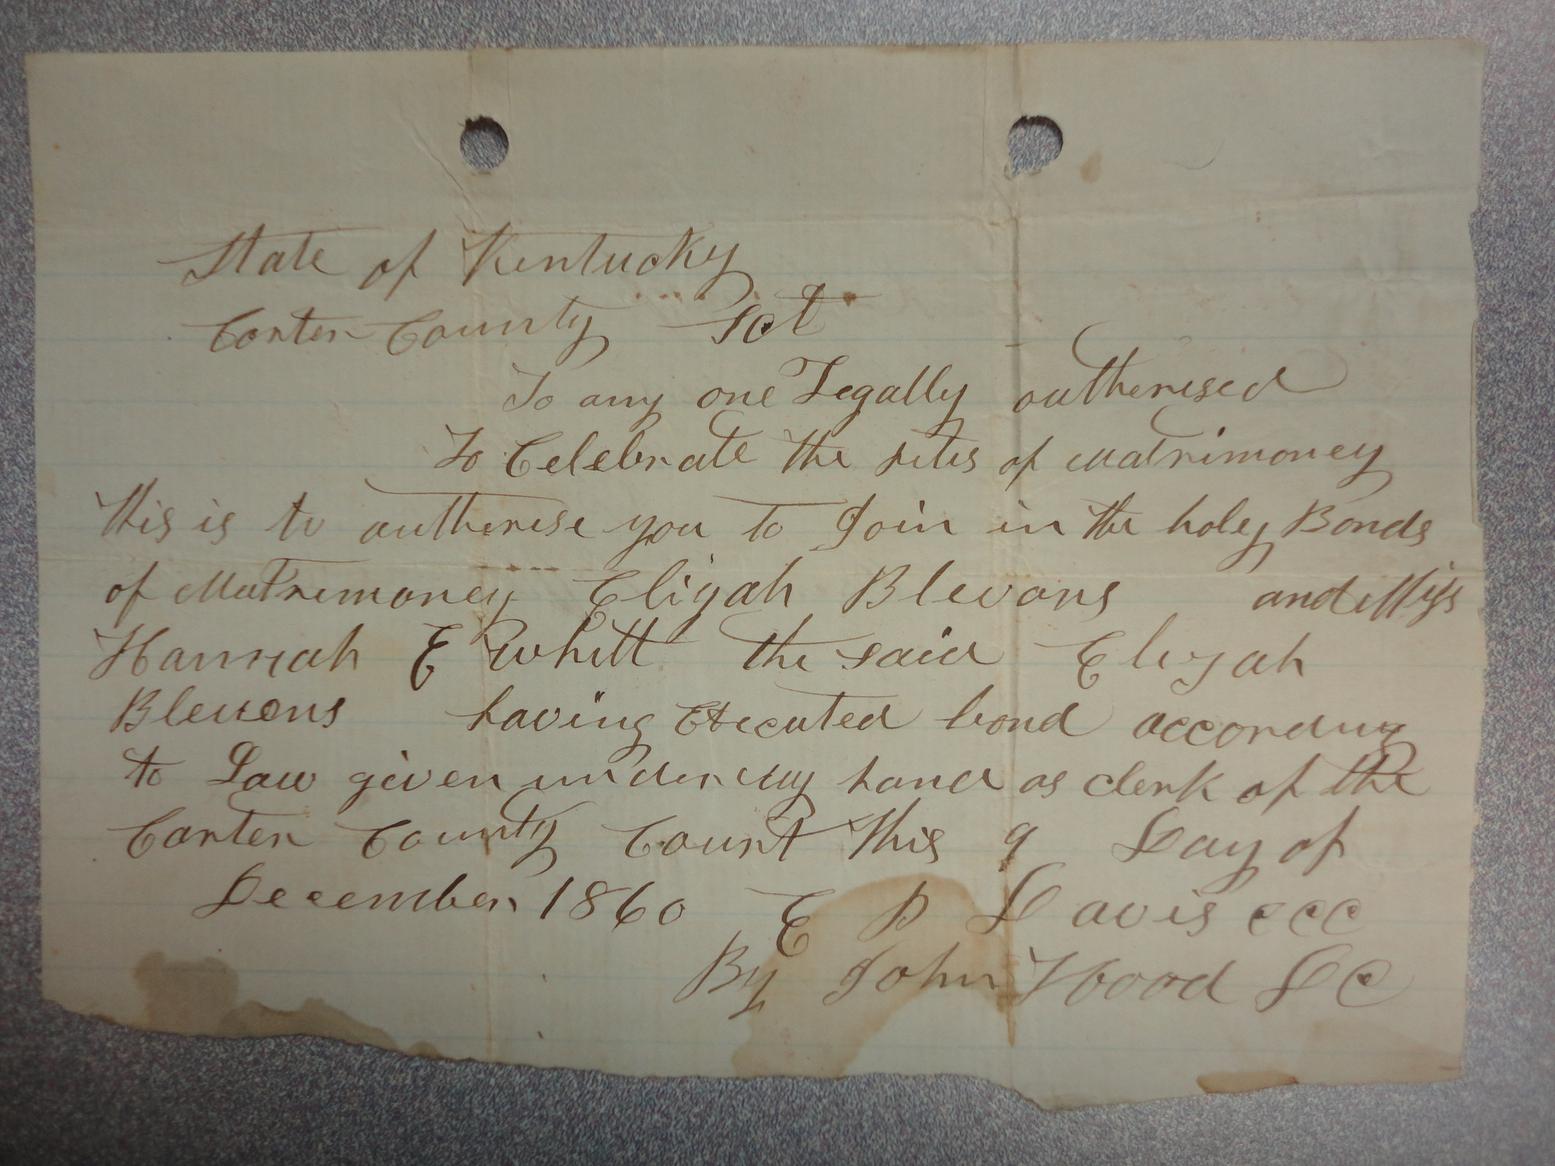 State of Kentucky
Carter County Sct
To any one Legally autherised
To Celebrate the rites of Matrimoney
this is to autherise you to Join in the holy Bonds
of Matrimoney Elijah Blevans and Miss
Hannah E Whitt the said Elijah
Blevens having Executed bond according
to Law given under my hand as clerk of the
Carter County Court this 9 Day of
December 1860 E D Davis CCC
By John Hood DC